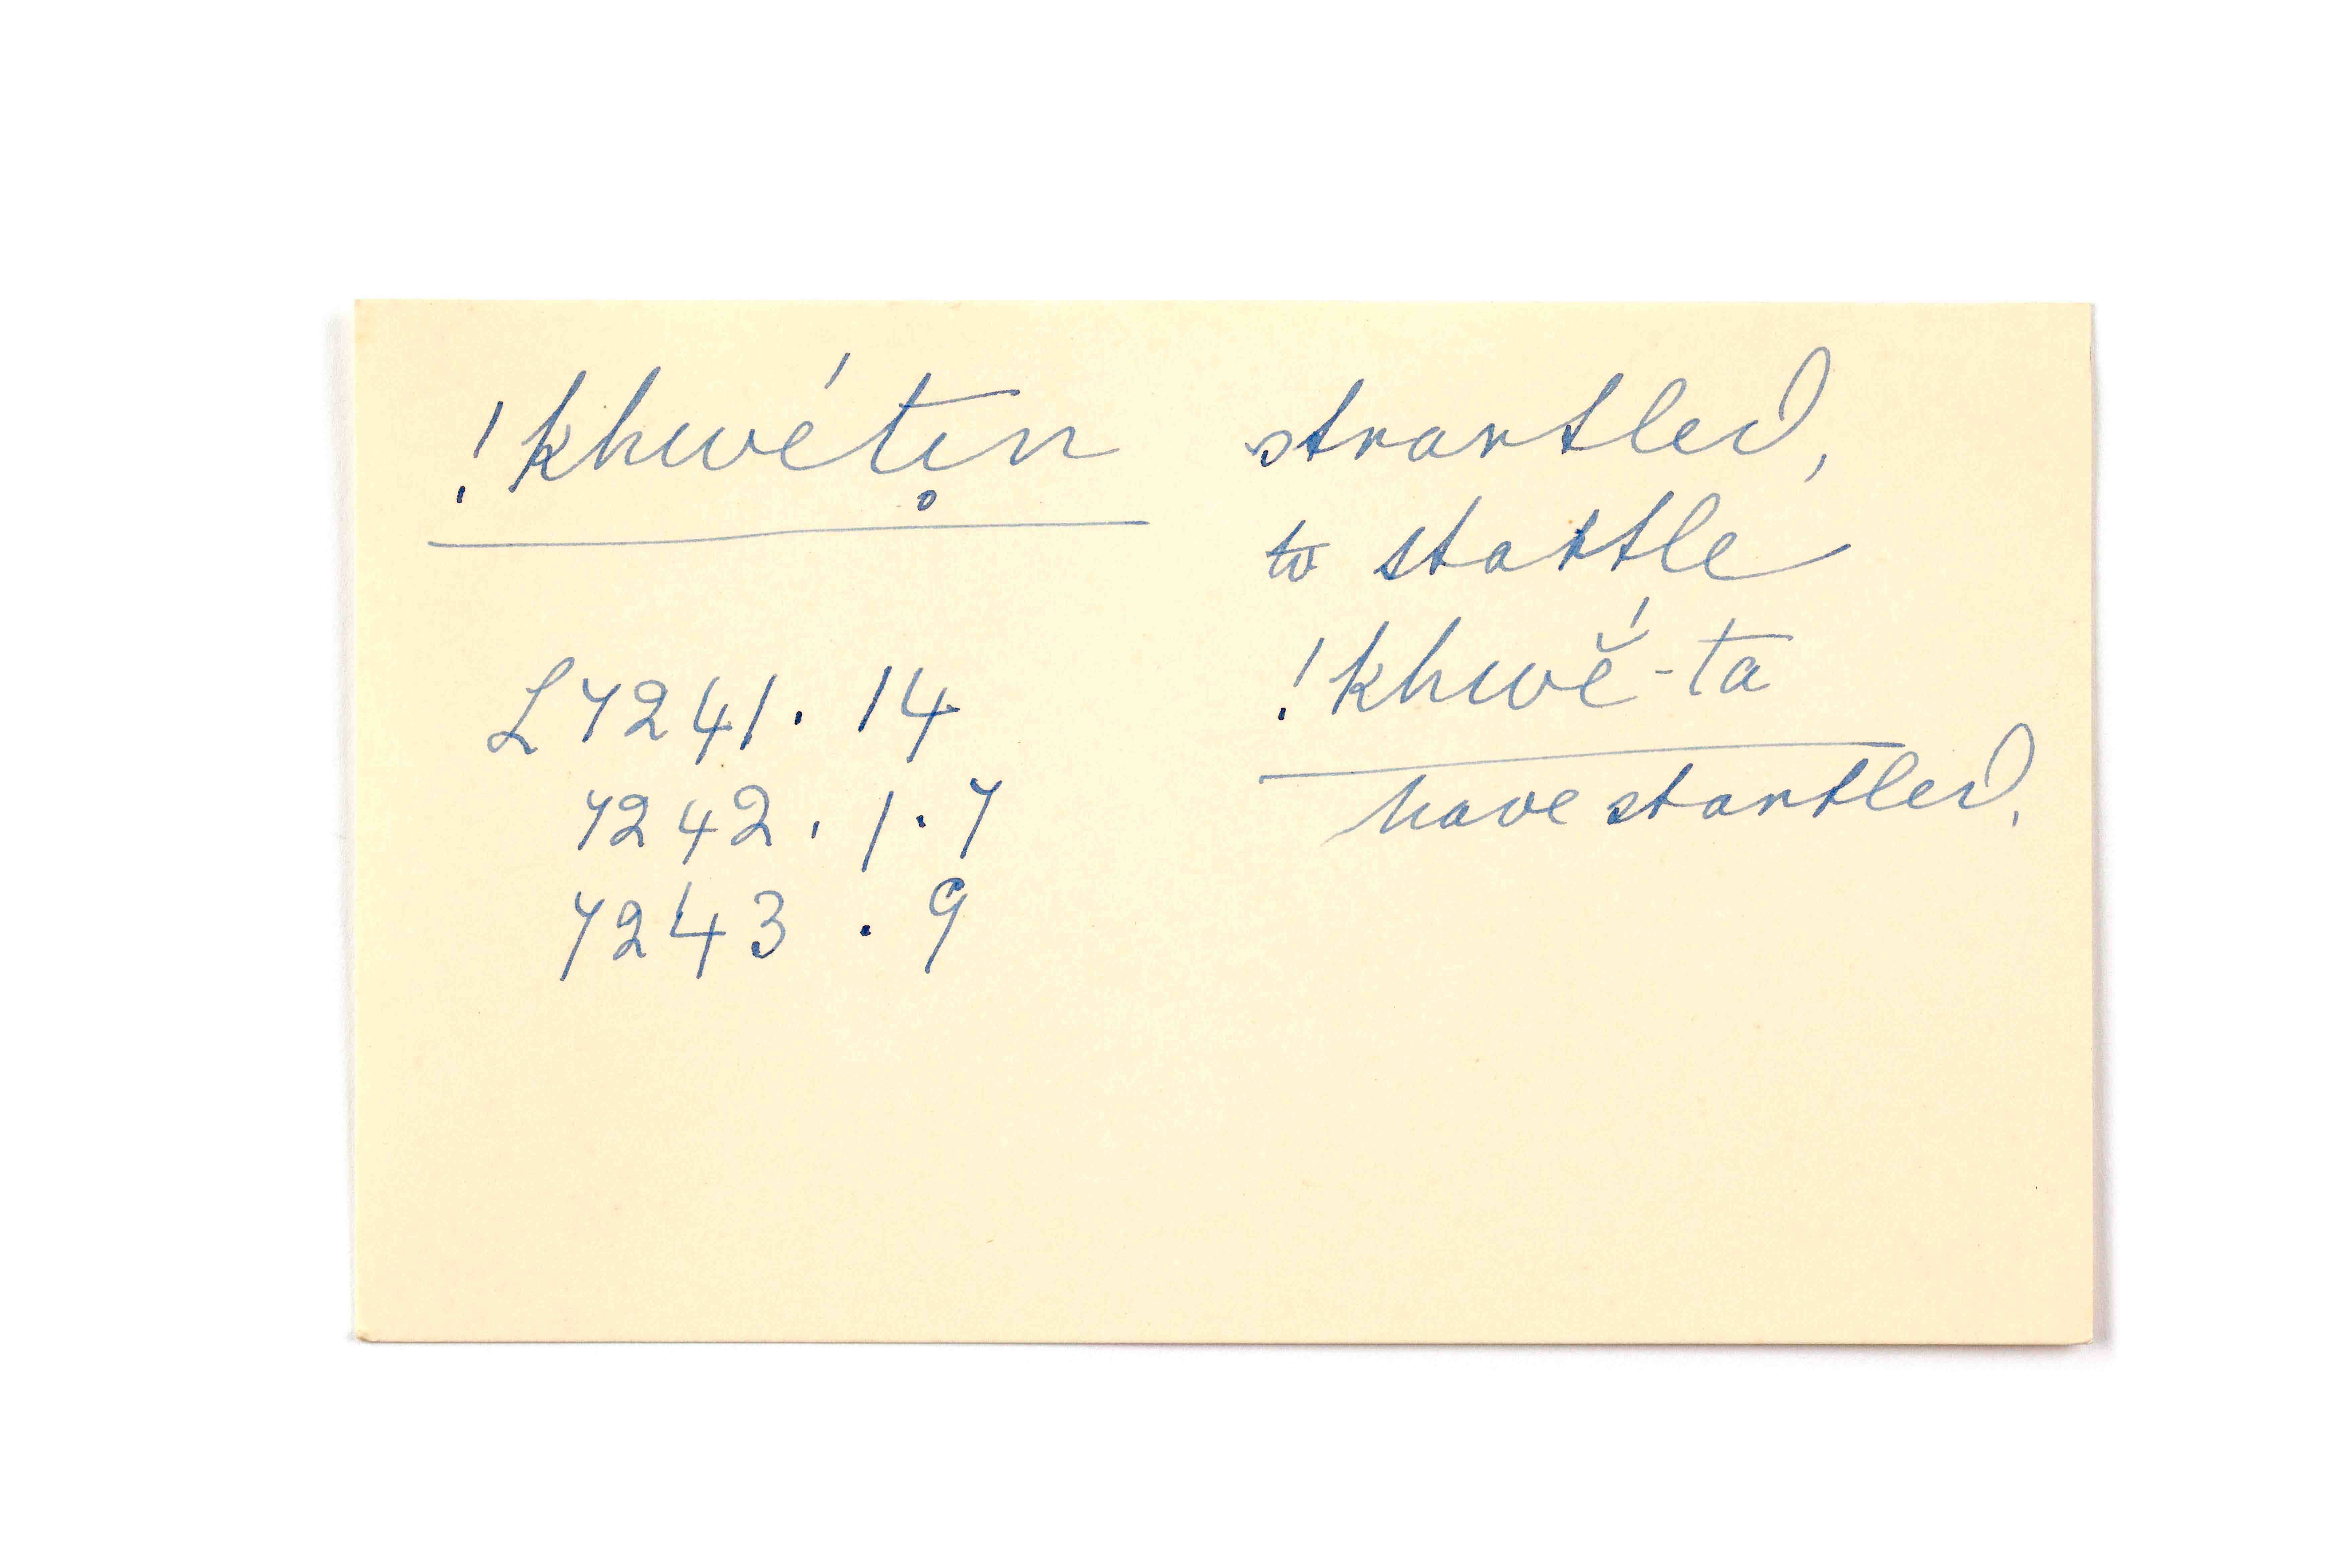 !khwétı̥n
L7241. 14
7242. 1.7
7243 . 9
strartled,
to startle
!khwĕ́-ta
have startled.